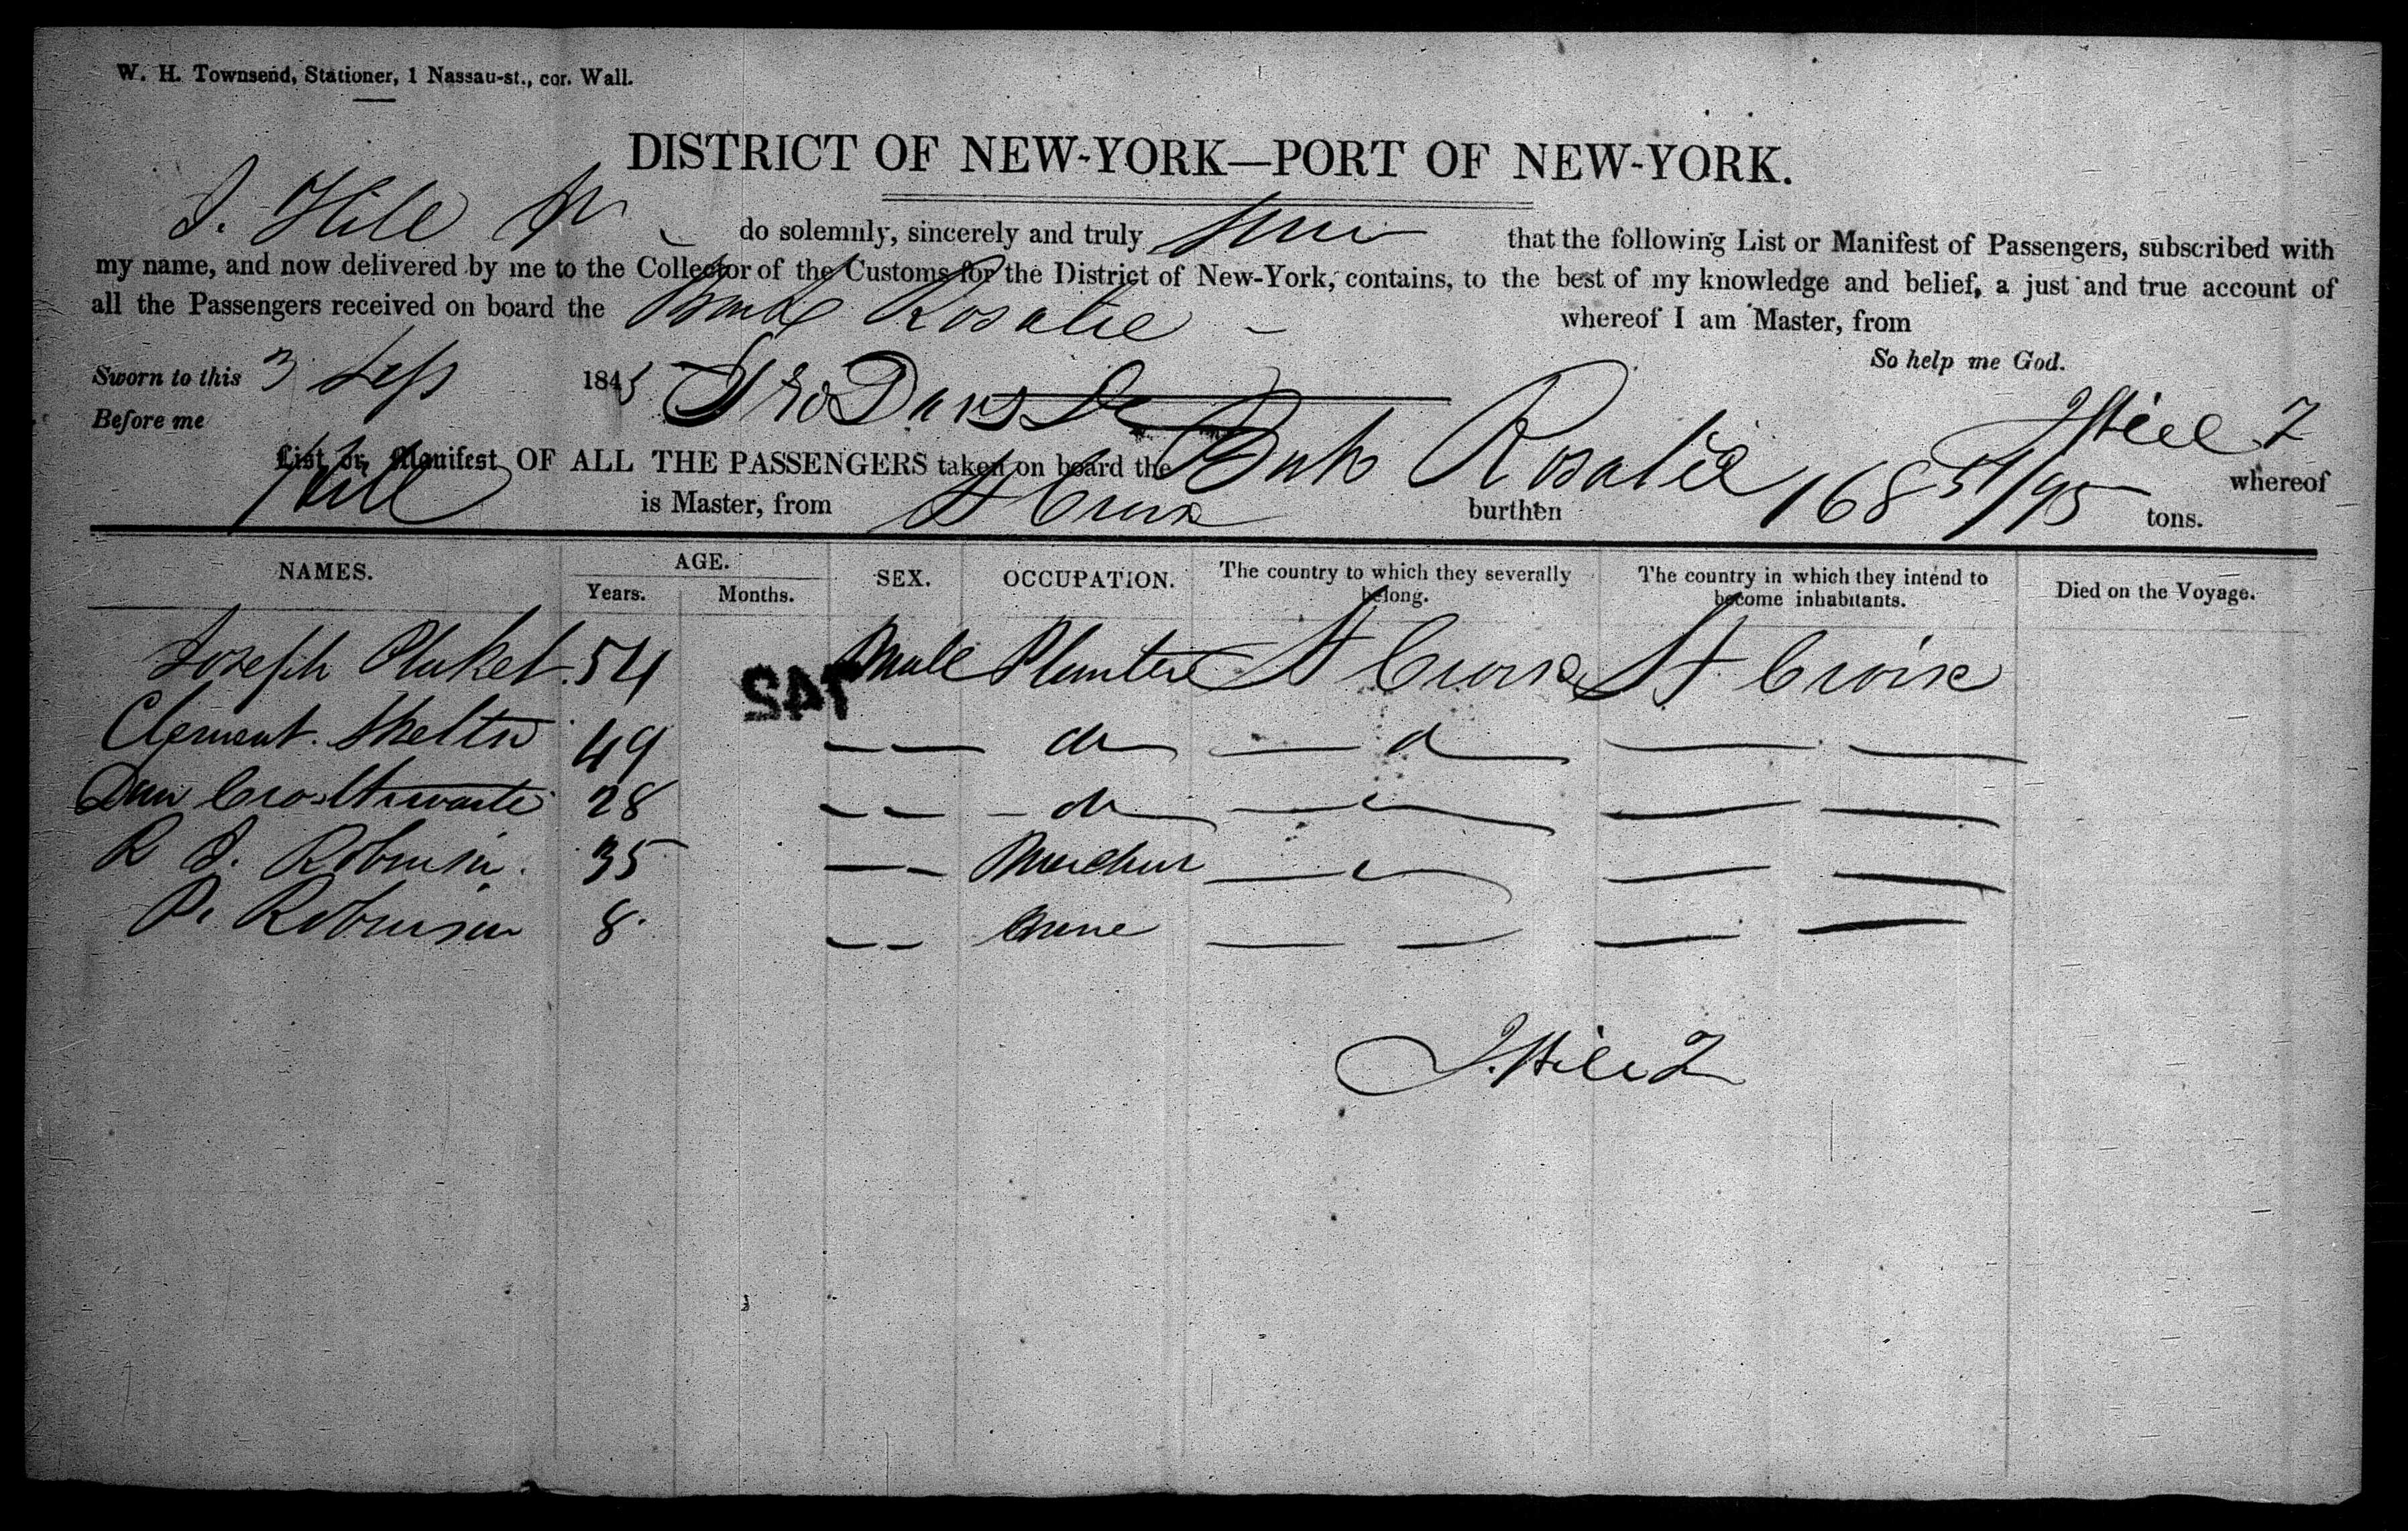 W. H. Townsend, Stationer, 1 Nassau-st., cor. Wall.
DISTRICT OF NEW-YORK—PORT OF NEW-YORK.
J. Hill Jr do solemnly, sincerely and truly that the following List or Manifest of Passengers, subscribed with
my name, and now delivered by me to the Collector of the Customs for the District of New-York, contains, to the best of my knowledge and belief, a just and true account of
all the Passengers received on board the Bark Rosalie whereof I am Master, from
So help me God.
Sworn to this 3 Sep 1845
Before me
J Hill
List or Manifest OF ALL THE PASSENGERS taken on board the Bark Rosalie whereof
Hill is Master, from St Croix burthen 168 51/95 tons.
NAMES. AGE. SEX. OCCUPATION. The country to which they severally belong. The country in which they intend to become inhabitants. Died on the Voyage.
Years. Months.
Joseph Plaket 54 Male Planter St Croix St Croix
742
Clement Shelton 49 — — do — d — —
Dan Crosthwaite 28 — — do — — —
R J. Robinson 35 — — Merchant — — —
P. Robinson 8 — — — — — —
J. Hill